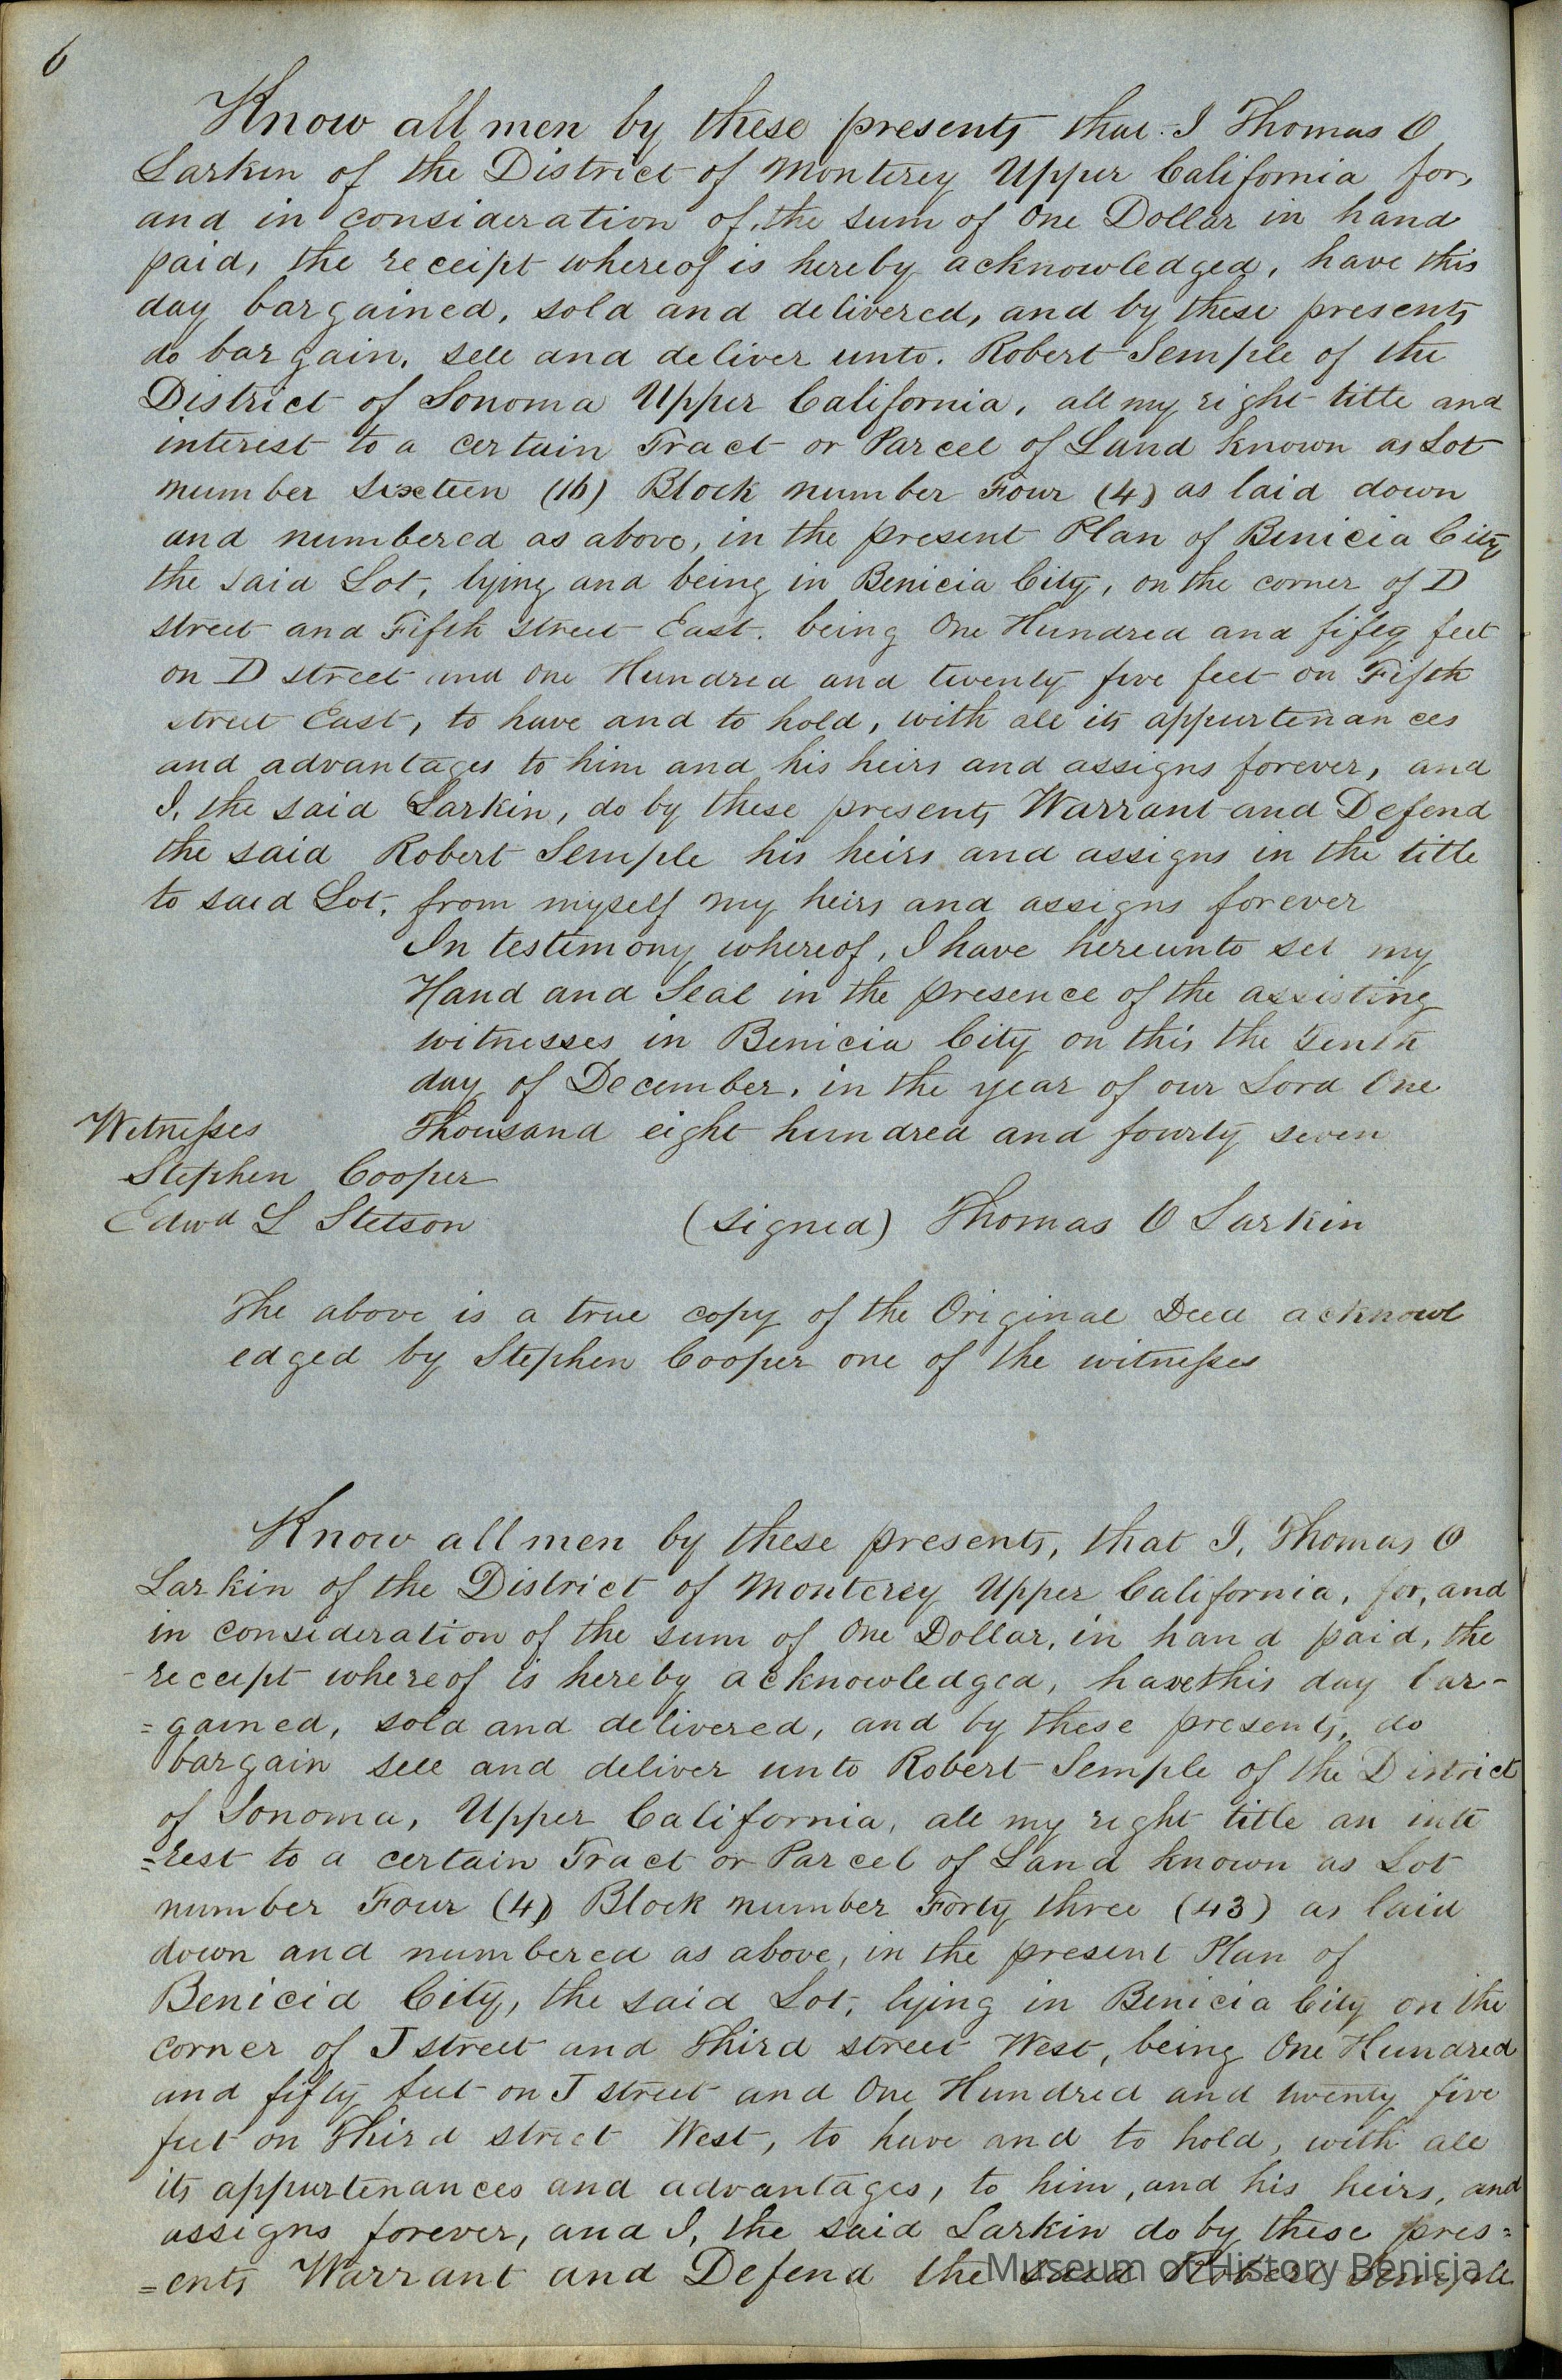 6
Know all men by these presents that I Thomas O
Larkin of the District of Monterey Upper California for,
and in consideration of, the sum of One Dollar in hand
paid, the receipt whereof is hereby acknowledged, have this
day bargained, sold and delivered, and by these presents
do bargain, sell and deliver unto. Robert Semple of the
District of Sonoma Upper California, all my right title and
interest to a certain Tract or Parcel of Land known as Lot
number Sixeteen (16) Block number Four (4) as laid down
and numbered as above, in the present Plan of Benicia City
the said Lot, lying and being in Benicia City, on the corner of D
street and Fifth street East. being One Hundred and fifty feet
on D street and One Hundred and twenty five feet on Fifth
street East, to have and to hold, with all its appurtenances
and advantages to him and his heirs and assigns forever, and
I, the said Larkin, do by these presents Warrant and Defend
the said Robert Semple his heirs and assigns in the title
to said Lot, from myself my heirs and assigns forever
In testimony whereof, I have hereunto set my
Hand and Seal in the presence of the assisting
witnesses in Benicia City on this the Tenth
day of December, in the year of our Lord One
Thousand eight hundred and fourty seven
Witnesses
Stephen Cooper
Edwd L Stetson
(signed) Thomas O Larkin
The above is a true copy of the Original Deed acknowl
edged by Stephen Cooper one of the witnesses
Know all men by these presents, that I, Thomas O
Larkin of the District of Monterey Upper California, for, and
in consideration of the sum of One Dollar, in hand paid, the
receipt whereof is hereby acknowledged, have this day bar-
=gained, sold and delivered, and by these presents, do
bargain sell and deliver unto Robert Semple of the District
of Sonoma, Upper California, all my right title an inte
=rest to a certain Tract or Parcel of Land known as Lot
number Four (4) Block number Forty three (43) as laid
down and numbered as above, in the present Plan of
Benicia City, the said Lot, lying in Benicia City on the
corner of J street and Third street West, being One Hundred
and fifty feet on J street and One Hundred and twenty five
feet on Third street West, to have and to hold, with all
its appurtenances and advantages, to him, and his heirs, and
assigns forever, and I, the said Larkin do by these pres=
=ents Warrant and Defend the said Robert Semple
Museum of History Benicia